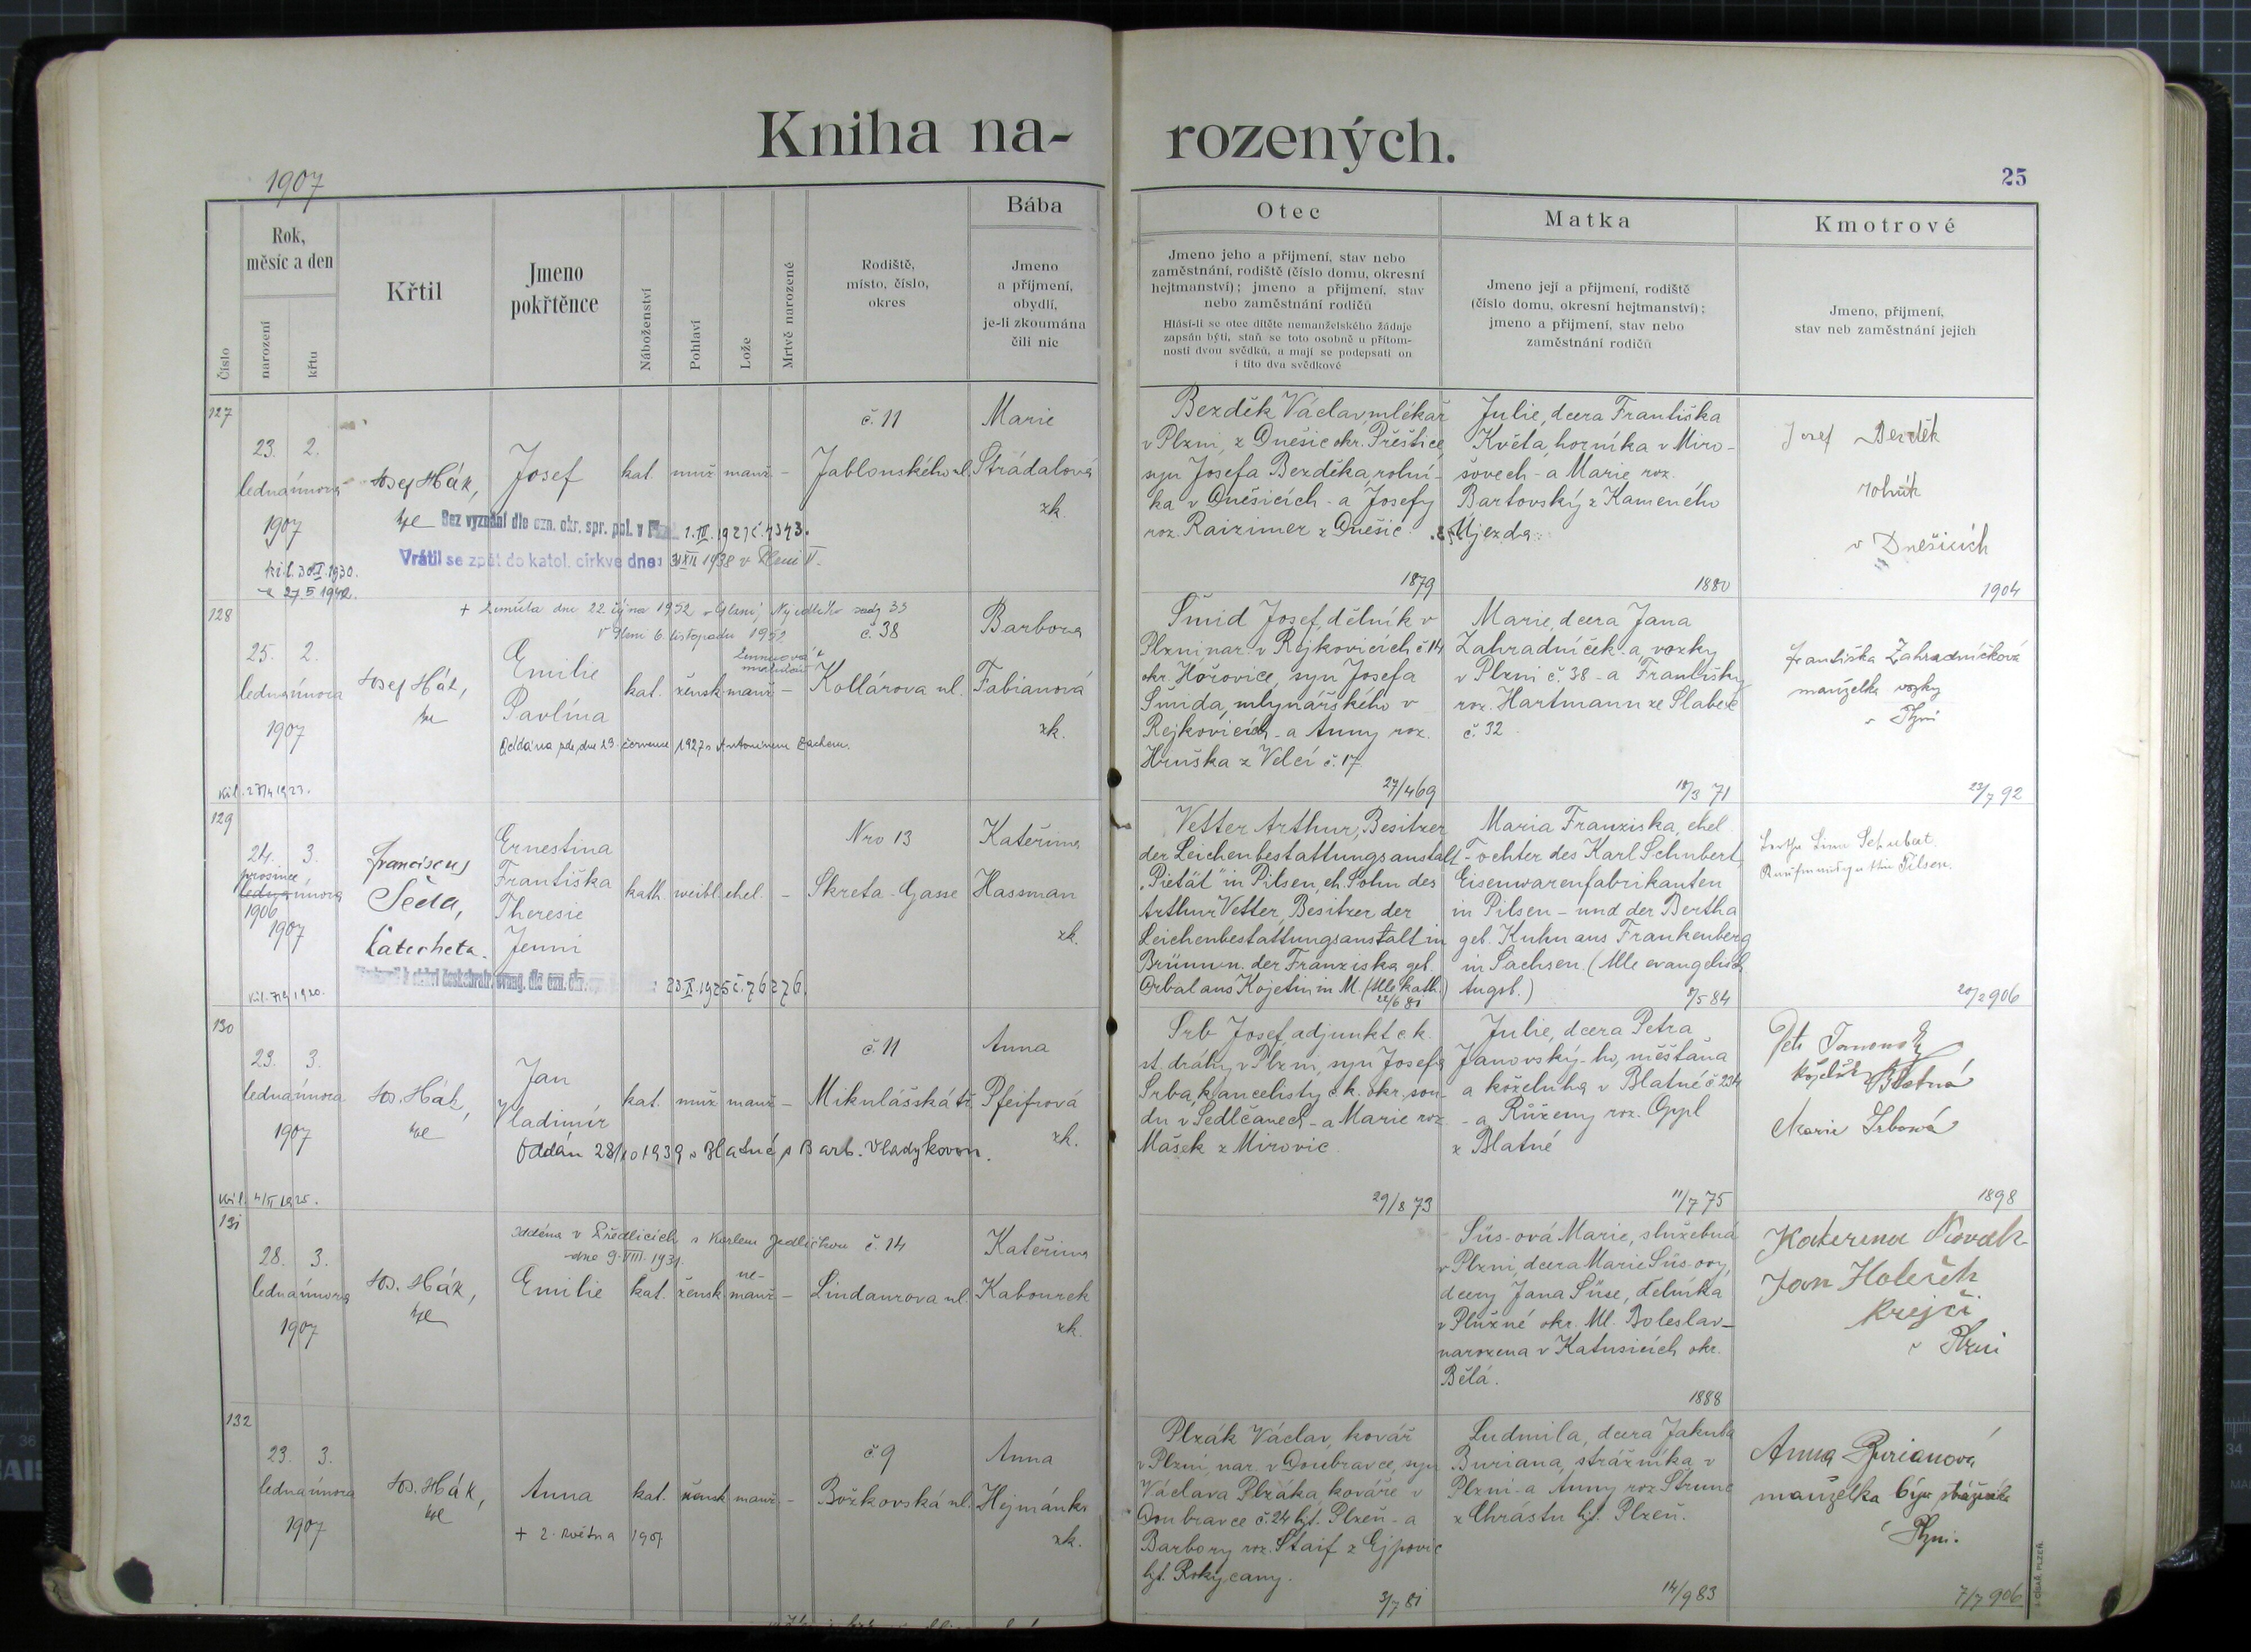 Kniha na-
rozených.
1907
25
Číslo
Rok,
měsíc a den
narození
křtu
Křtil
Jmeno
pokřtěnce
Náboženství
Pohlaví
Lože
Mrtvě narozené
Rodiště,
místo, číslo,
okres
Bába
Jmeno
a příjmení,
obydlí,
je-li zkoumána
čili nic
Otec
Jmeno jeho a přijmení, stav nebo
zaměstnání, rodiště (číslo domu, okresní
hejtmanství); jmeno a přijmení, stav
nebo zaměstnání rodičů
Hlásí-li se otec dítěte nemanželského žádaje
zapsán býti, staň se toto osobně u přítom-
nosti dvou svědků, a mají se podepsati on
i tito dva svědkové
Matka
Jmeno její a přijmení, rodiště
(číslo domu, okresní hejtmanství);
jmeno a přijmení, stav nebo
zaměstnání rodičů
Kmotrové
Jmeno, přijmení,
stav neb zaměstnání jejich
127
23. 2.
ledna února
1907
30. 1930.
27.5 1942.
Josef Hák,
Josef
kat. muž. manž. -
č. 11
Jablonského ul.
Marie
Strádalová
zk.
Bez vyznání dle ozn. okr. spr. pol. v 1.III.1927 č. 4343.
Vrátil se zpět do katol. církve dne: 31 XII 1938 v Plzni V.
Bezděk Václav, mlékař
v Plzni, z Dnešic okr. Přeštice,
syn Josefa Bezděka, rolní-
ka v Dnešicích - a Josefy
roz. Raizimer z Dnešic.
1879
Julie, dcera Františka
Květa, horníka v Miro-
šovech - a Marie roz.
Bartovský z Kameného
Újezda.
1880
Josef Bezděk
rolník
v Dnešicích
1904
128
25. 2.
ledna února
1907
Josef Hák,
+ Zemřela dne 22 října 1952 v Plzni, Nejedlého sady 33
V Plzni 6. listopadu 1952
Emilie
Pavlína
kat. žensk. manž. -
č. 38
Kollárova ul.
Barbora
Fabianová
zk.
Oddána zde, dne 19. července 1927 s Antonínem
Šmid Josef, dělník v
Plzni nar. v Rejkovicích č 14
okr. Hořovice, syn Josefa
Šmida, mlynářského v
Rejkovicích - a Anny roz.
Hruška z Velcí č. 17
27/4 69
Marie, dcera Jana
Zahradníček-a, vozky
v Plzni č. 38 - a Františky
roz. Hartmann ze Slabec
č. 32
18/3 71
Františka Zahradníčková
manželka vozky
v Plzni
23/7 92
129
24. 3.
prosince
ledna února
1906
1907
Franciscus
Šeda,
Catecheta.
Ernestina
Františka
Theresie
Jenni
kath. weibl. ehel. -
Nro 13
Skreta-Gasse
Kateřina
Hassman
zk.
23.X.1925 č. 76276.
Vetter Arthur, Besitzer
der Leichenbestattungsanstalt
"Pietät" in Pilsen, eh. Sohn des
Arthur Vetter, Besitzer der
Leichenbestattungsanstalt in
Brünn u. der Franziska geb.
Orbal aus Kojetin in M. (Alle kath.)
22/6 81
Maria Franziska, ehel.
Tochter des Karl Schubert,
Eisenwarenfabrikanten
in Pilsen - und der Bertha
geb. Kuhn aus Frankenberg
in Sachsen. (Alle evangelisch
Augsb.)
8/5 84
Schubert
Pilsen.
20/2 906
130
23. 3.
ledna února
1907
Jos. Hák,
Jan
Vladimír
kat. muž. manž. -
č. 11
Mikulášská tř.
Anna
Pfeifrová
zk.
Oddán 28/10 1939 v Blatné s Barb. Vladykovou.
Srb Josef, adjunkt c. k.
st. dráhy v Plzni, syn Josefa
Srba, kancelisty c. k. okr. sou-
du v Sedlčanech - a Marie roz.
Mašek z Mirovic.
29/8 73
Julie, dcera Petra
Janovský-ho, měšťana
a koželuha v Blatné č 234
- a Růženy roz. Oppl
z Blatné
11/7 75
Petr Janovský
Blatná
Marie Srbová
1898
131
28. 3.
ledna února
1907
Jos. Hák,
Oddána v Předlicích s Karlem Jedličkou
dne 9. VIII. 1931.
Emilie
kat. žensk. ne-
manž. -
č. 14
Lindaurova ul.
Kateřina
Kabourek
zk.
Süs-ová Marie, služebná
v Plzni, dcera Marie Süs-ovy,
dcery Jana Süse, dělníka
v Plužné okr. Ml. Boleslav -
narozena v Katusicích okr.
Bělá.
1888
Katerina Novak
Jan Holeček
krejčí
v Plzni
132
23. 3.
ledna února
1907
Jos. Hák,
Anna
+ 2. května 1907
kat. žensk. manž. -
č. 9
Božkovská ul.
Anna
Hejmánka
zk.
Plzák Václav, kovář
v Plzni, nar. v Doubravce, syn
Václava Plzáka, kováře v
Doubravce č. 24 hjt. Plzeň - a
Barbory roz. Štaif z Ejpovic
hjt. Rokycany.
3/7 81
Ludmila, dcera Jakuba
Buriana, strážníka v
Plzni - a Anny roz. Strunc
z Chrástu hjt. Plzeň.
14/9 83
Anna Burianová
manželka
Plzni.
7/7 906
J. CÍSAŘ, PLZEŇ.